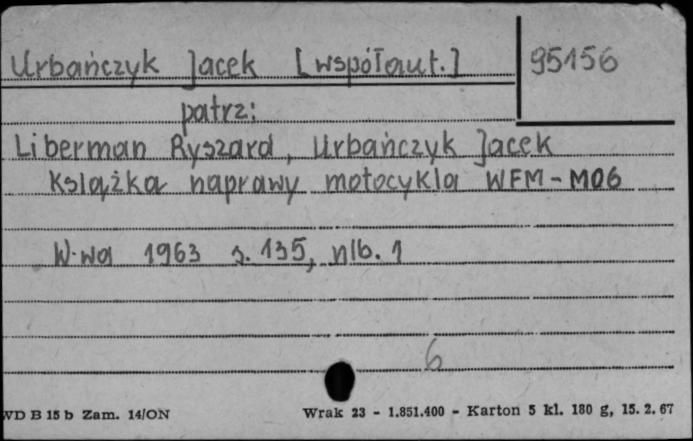 Urbańczyk Jacek [współaut.] 95156
patrz:
Liberman Ryszard, Urbańczyk Jacek
Książka naprawy motocykla WFM-M06
W-wa 1963 s. 135, nlb. 1
6
WD B 15 b Zam. 14/ON Wrak 23 - 1.851.400 - Karton 5 kl. 180 g, 15. 2. 67